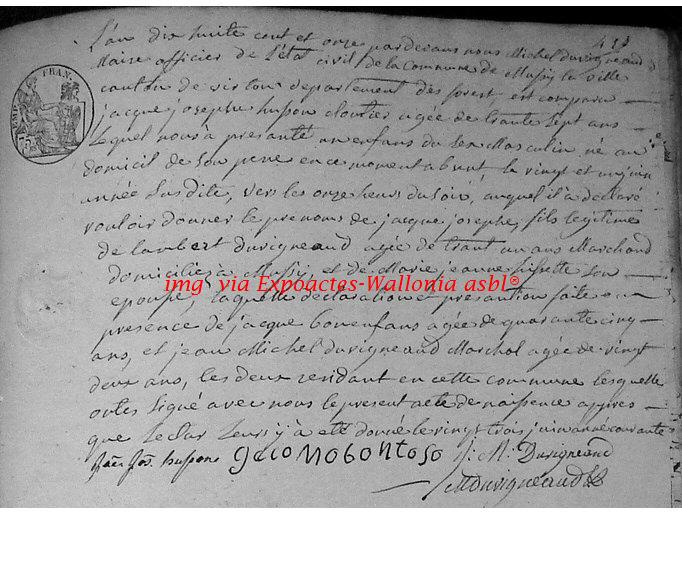 413
L'an dix huite cent et onze pardevans nous Michel duvigneaud
Maire officier de L'éta civil de la commune de Mussy la ville
canton de virton departement des forest, est comparu
jacque josephe husson cloutier agée de trante sept ans
Lequel nous à presanté un enfans du sex Masculin né au
domicil de son pere en ce moment absent, le vingt et un juin
année susdite, vers les onze heurs du soir, auquel il à déclaré
vouloir donner le prenoms de jacque josephe, fils legitime
de lambert duvigneaud agée de trant un ans Marchand
domiciliés à Mussy, et de Marie jeanne son
epouse, laquelle déclaration et presantion faite en
presence de jacque bonenfans agée de quarante cinq
ans, et jean Michel duvigneaud Marchal agée de vingt
deux ans, les deux residant en cette commune lesquelle
ontes signé avec nous le present acte de naissence appres
que Lectur Leurs y à eté donné le vingt trois juin annee courante
husson J: M: Duvigneaud
Mduvigneaud
FRAN.
75
img via Expoactes-Wallonia asbl®